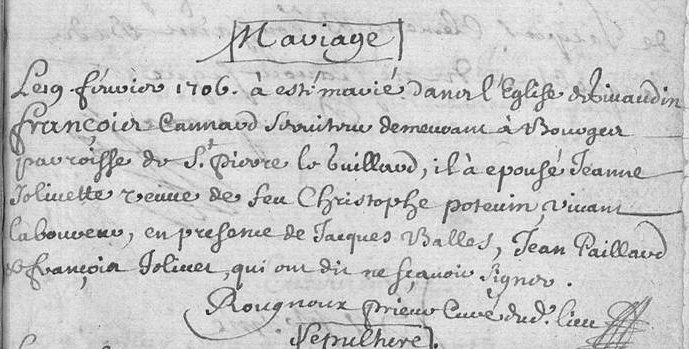 Mariage
Le 19 fevrier 1706. à esté marié dans l'Eglise de Rivaudin
françois Cannard serviteur demeurant à Bourges
parroisse de St. Pierre le Guillard, il à epousé Jeanne
Jolivette veuve de feu Christophe potevin, vivant
laboureur, en presence de Jacques Balles, Jean Paillard
& françois Jolivet, qui ont dit ne sçavoir signer.
Rougnoux prieur Curé dud. lieu
Sepulture.